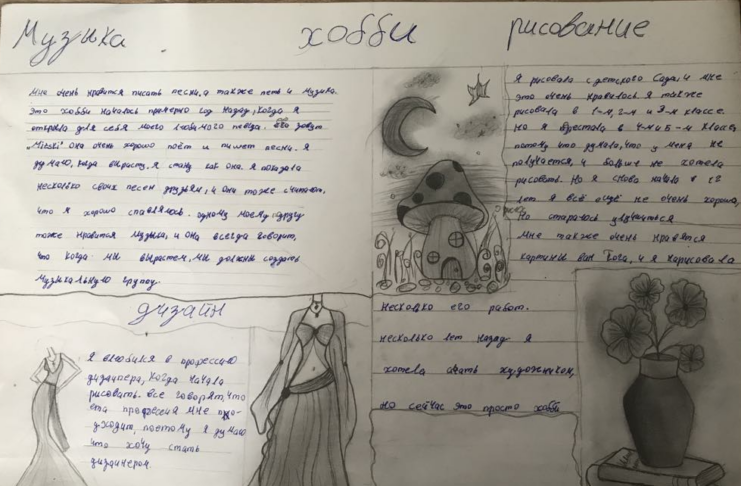 Музыка
хобби
рисование
Мне очень нравится писать песни, а также петь и музыка.
Это хобби началось примерно год назад, когда я
открыла для себя моего любимого певца. Его зовут
"Mitski" она очень хорошо поёт и пишет песни. Я
думаю, когда вырасту, я стану как она. Я показала
несколько своих песен друзьям, и они тоже считают,
что я хорошо справляюсь. одному моему другу
тоже нравится музыка, и она всегда говорит,
что когда мы вырастем, мы должны создать
музыкальную группу.
Я рисовала с детского сада, и мне
это очень нравилось я также
рисовала в 1-м, 2-м и 3-м классе.
Но я перестала в 4-м и 5-м классе
потому что думала, что у меня не
получается, и больше не хотела
рисовать. Но я снова начала в
лет я всё ещё не очень хороша,
Но стараюсь улучшиться
Мне также очень нравятся
картины Ван Гога, и я нарисовала
несколько его работ.
несколько лет назад я
хотела стать художником,
но сейчас это просто хобби
дизайн
Я влюбился в профессию
дизайнера, когда начала
рисовать. все говорят, что
эта профессия мне по-
дходит, поэтому я думаю
что хочу стать
дизайнером.